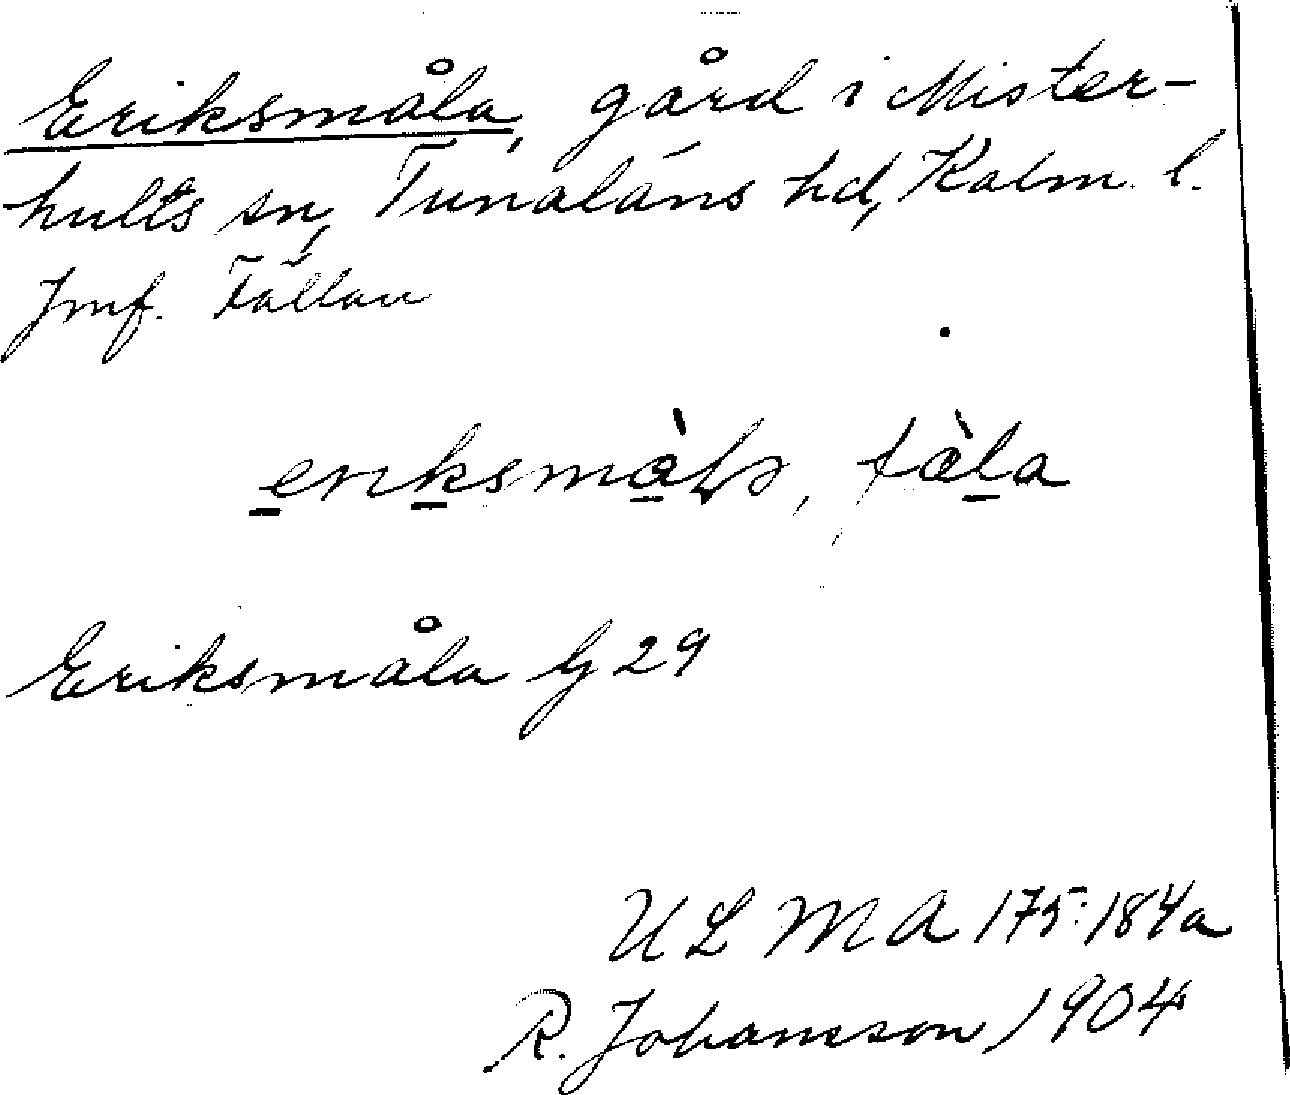 Eriksmåla, gård i Mister-
hults sn, Tunaläns hd, Kalm. l.
Jmf. Fällan
Eriksmåla G 29
ULMA 175:184a
R. Johansson 1904